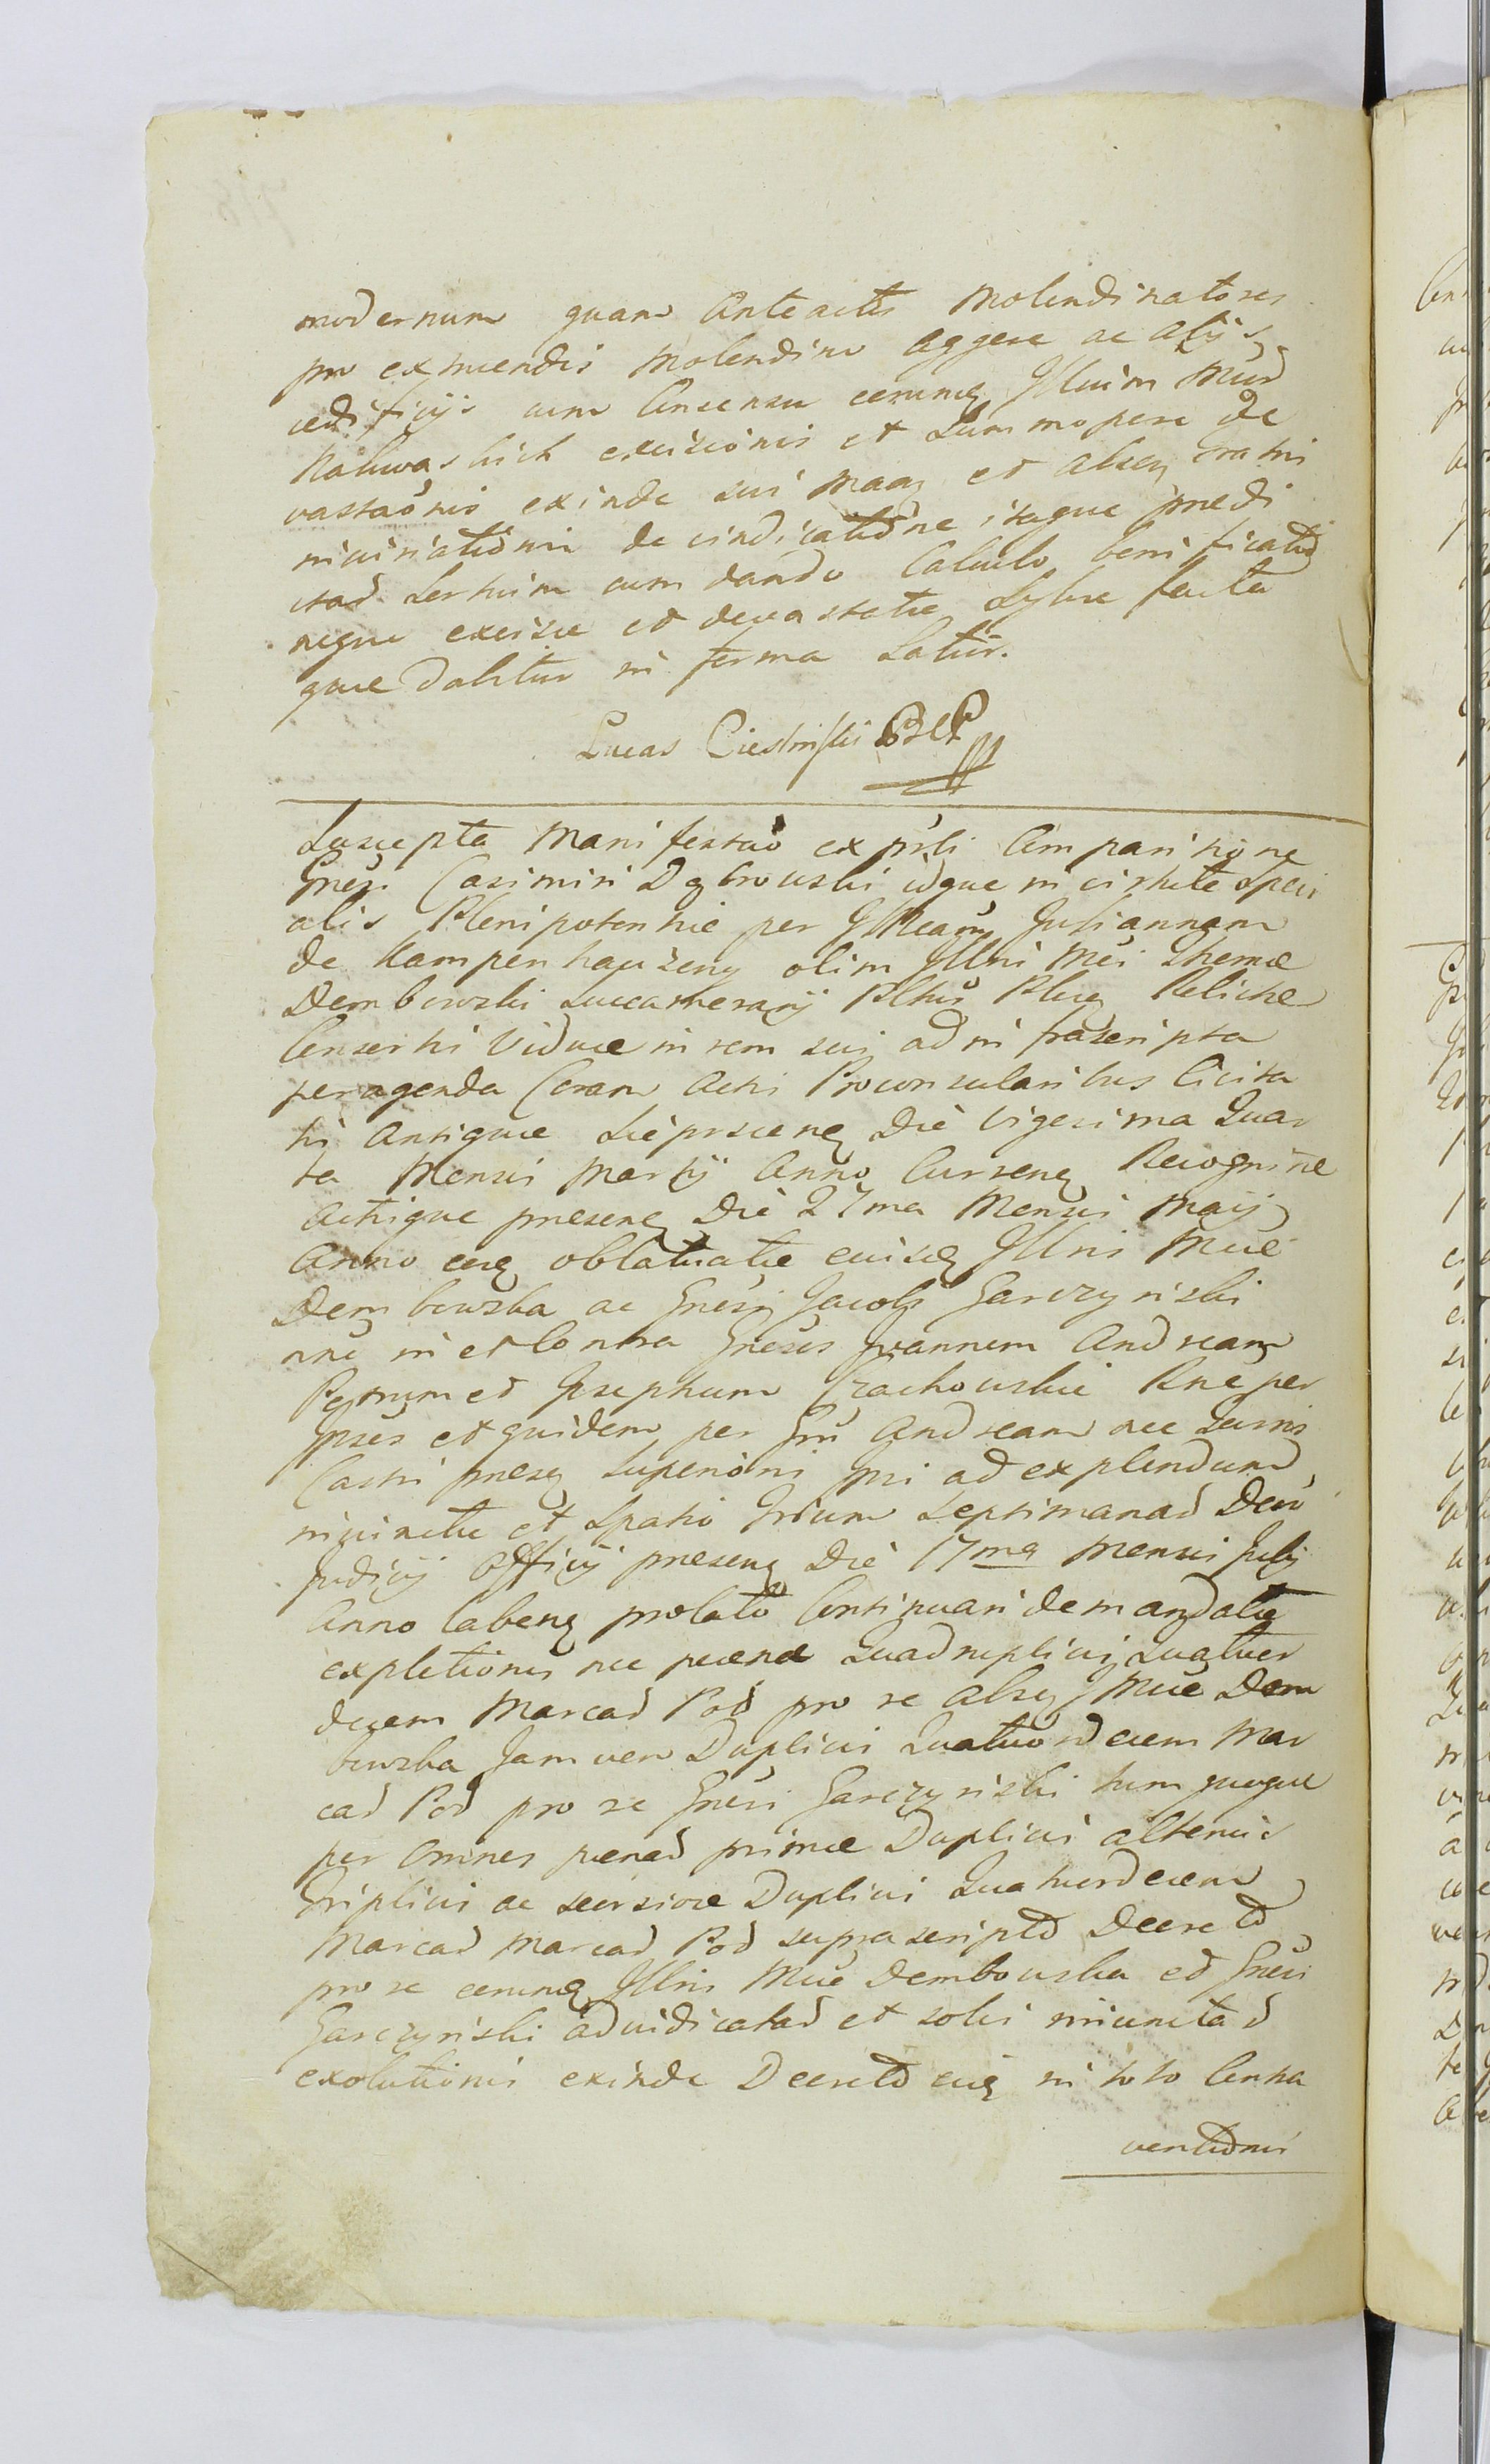 modernum quam Anteactos Molendinatores
pro exstruendis Molendino Aggere ac alijs
aedificijs cum Consensu eorund Illuim Mur
Nakwaskich excisionis et Summopere de
vastaonis exinde sui Maag et Alseq
de vindicatione itaque praedi
ctad cum dando Calculo
neque excisae et devastatae Sylvae facta
quae dabitur in forma Latiir.
Lucas Ciesliński
Suscepta Manifestaõ ex pnli Comparitione
Gnesi Casimiri Dąbrowski idque in virtute Speci
alis Plenipotentiae per Juliannam
de Kampenhauzeny olim Illris Mci Thomae
Dembowski Succamerarij Relictae
Consorti Viduae in rem sui ad infrascripta
peragenda Coram Actis Proconsularibus Civita
tis Antiquae Die Vigesima Quar
ta Mensis Martij Anno Curren Recognitae
Actisque presen Die 27ma Mensis Maij
Anno eoq oblatiatae Illris Mcae
Dembowska ac Gnesi Jacobi Garczyński
nne in et Contra Gnesos Joannem Andream
Petrum et Josephum Czachowskie Rne per
Ipsos et quidem per Gnu Andream nec
Castri presen Superiõri Ipsi ad explendum
iniunctae et Spatio Trium Septimanad Dcio
Judicij Officij presen Die 17ma Mensis Julij
Anno labenq prolato Continuari demandatae
expletionis nec paenae Quadruplicis Quatuor
decem Marcad Pod pro se Alseq Mcae Dem
bowska Jam vero Duplicis Quatuordecem Mar
cad Pod pro se Gnesi Garczyński tum quoque
per Omnes paenad primae Duplicis alterius
Triplicis ac seorsivae Duplicis Quatuordecem
Marcad Marcad Pod suprascripto Decreto
pro se eorunq Illris Mcae Dembowska et Gnesi
Garczyński adiudicatad et solvi iniunctad
exolutionis exinde Decreto eoq in toto Contra
ventionis